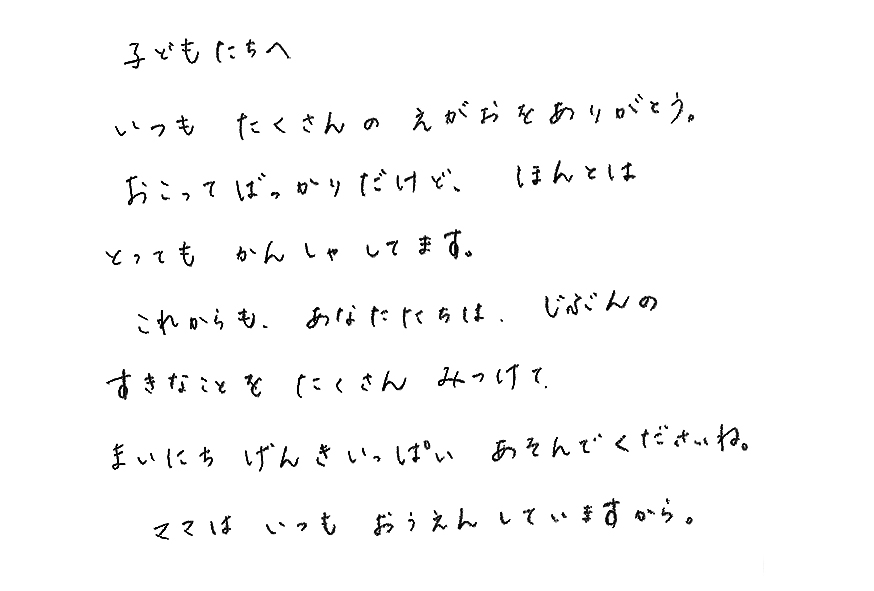 子どもたちへ
いつも たくさんの えがおをありがとう。
おこってばっかりだけど、 ほんとは
とっても かんしゃしてます。
これからも、あなたたちは、じぶんの
すきなことを たくさん みつけて、
まいにち げんきいっぱい あそんでくださいね。
ママは いつも おうえんしていますから。